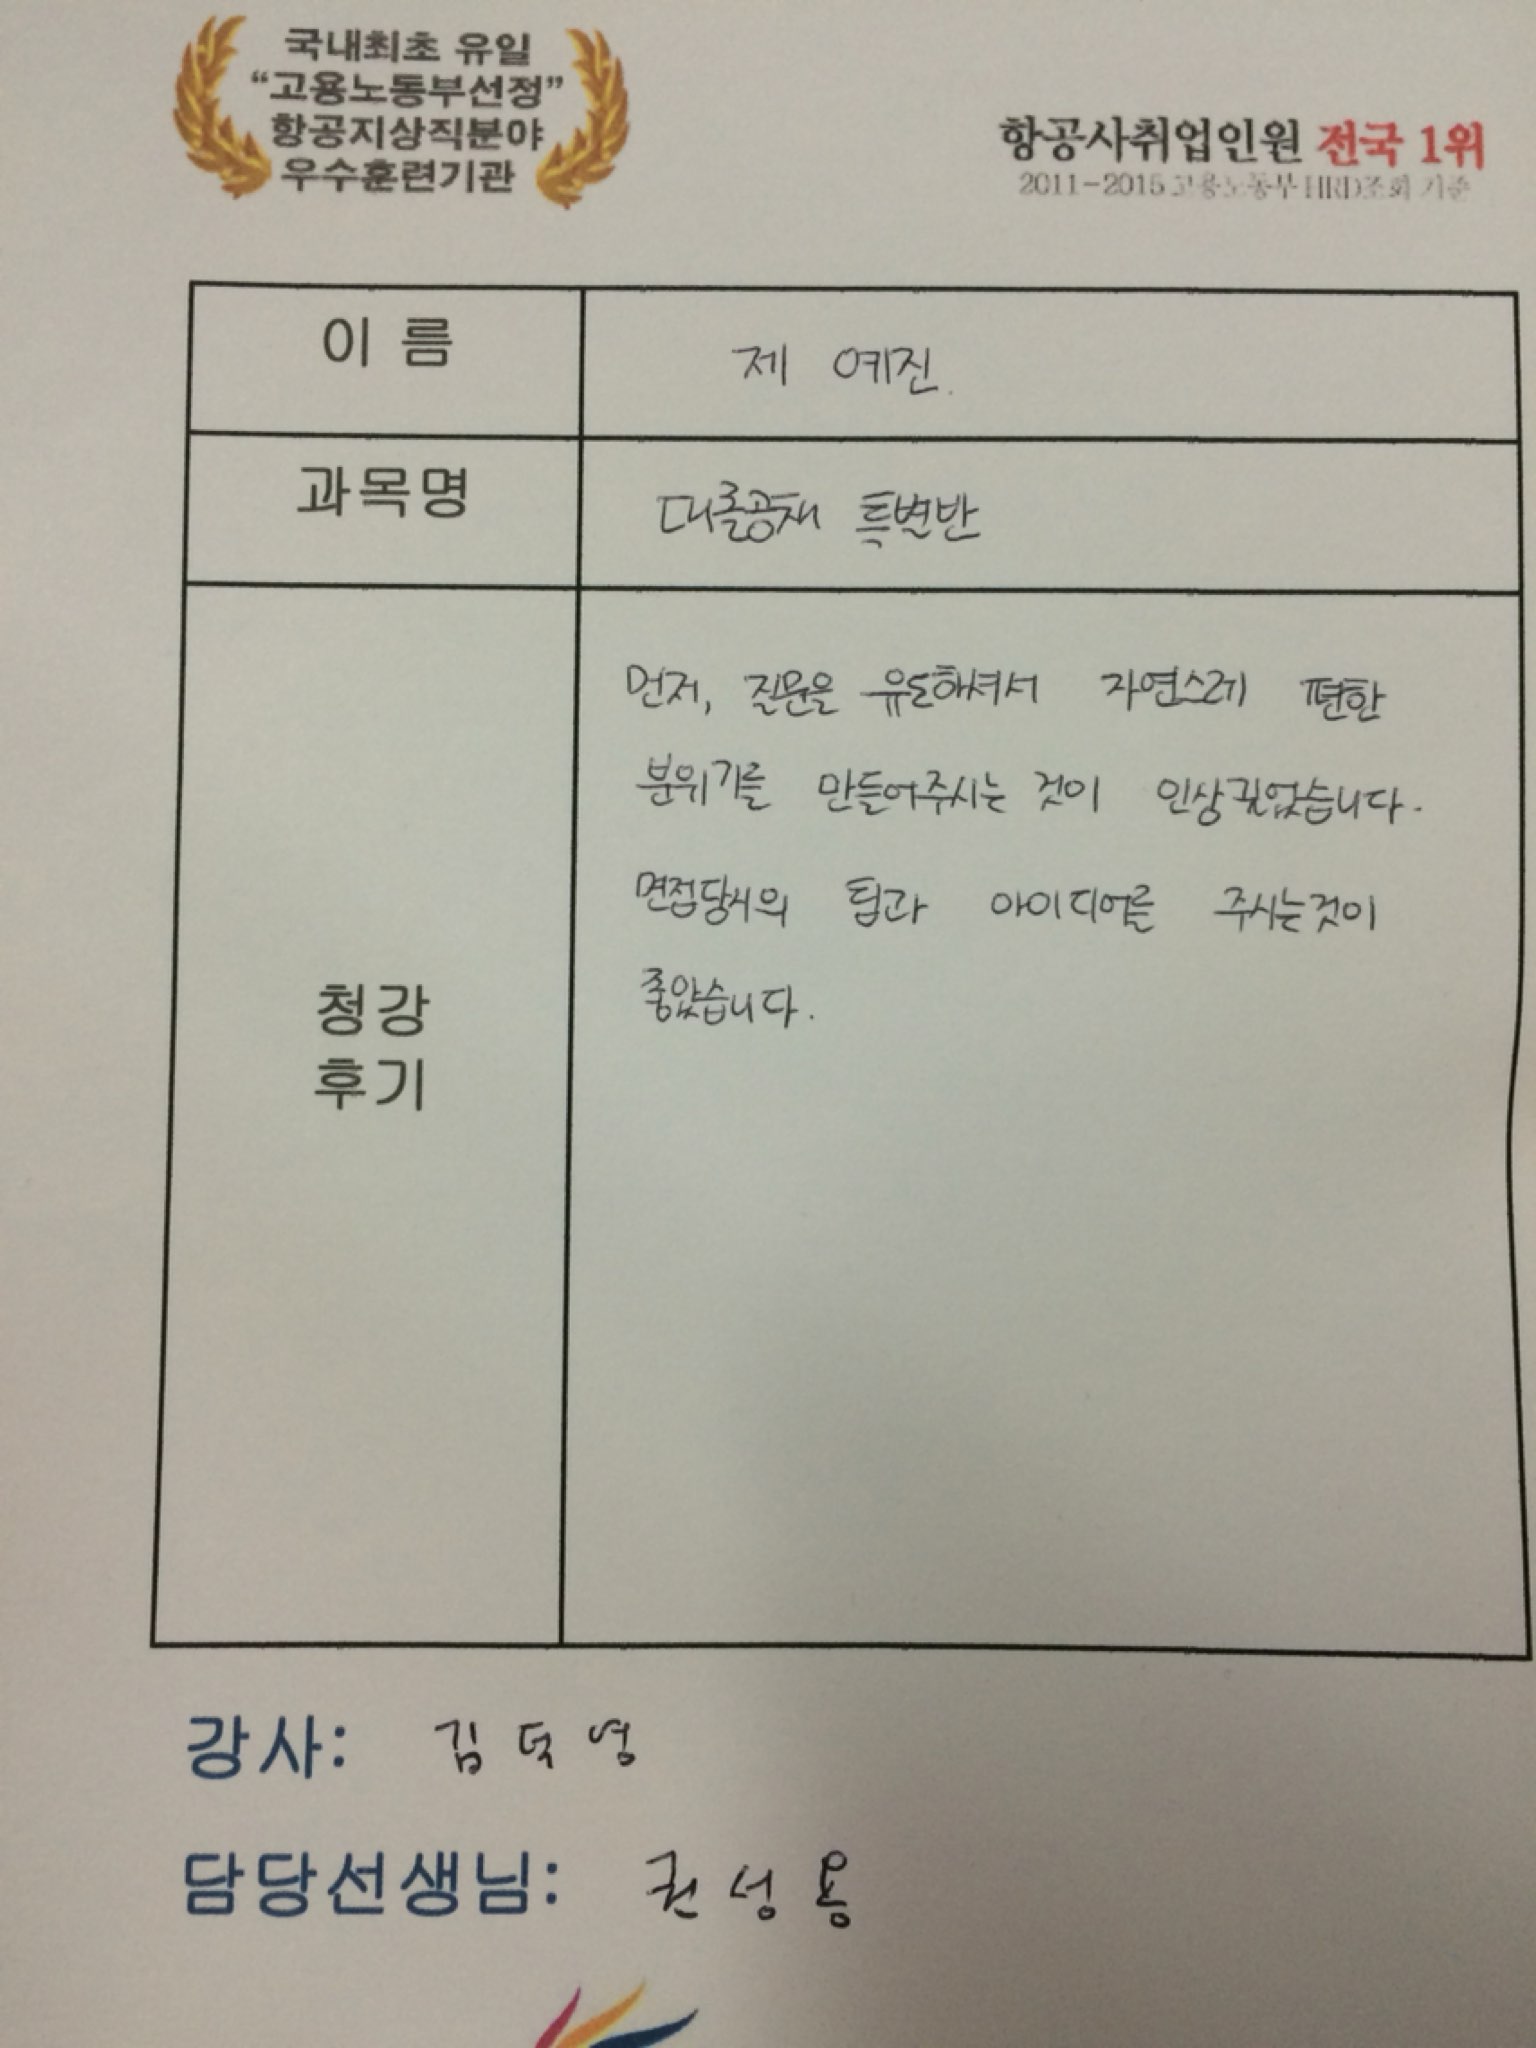 국내최초 유일
“고용노동부선정”
항공지상직분야
우수훈련기관
항공사취업인원 전국 1위
2011-2015 고용노동부 HRD조회 기준
이 름
제 예진.
과목명
대졸공채 특별반
청강
후기
먼저, 질문을 유도하셔서 자연스레 편한
분위기를 만들어주시는 것이 인상깊었습니다.
면접당시의 팁과 아이디어를 주시는것이
좋았습니다.
강사: 김덕영
담당선생님: 권성용